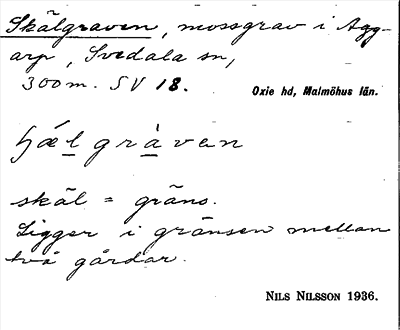 Skälgraven, mossgrav i Agg-
arp, Svedala sn,
300 m. SV 18.
Oxie hd, Malmöhus län.
ʃæl gràvan
skäl = gräns.
Ligger i gränsen mellan
två gårdar.
NILS NILSSON 1936.